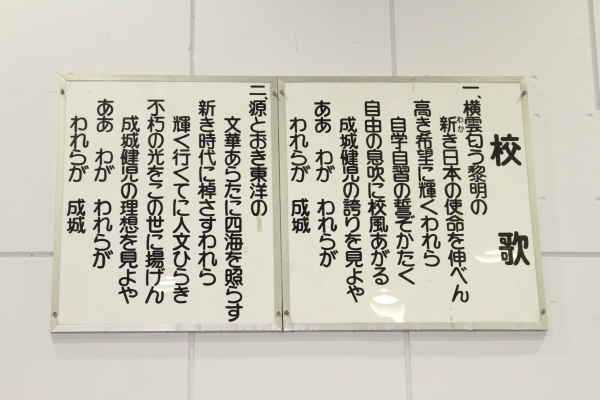 校歌
一、横雲匂う黎明の
新き日本の使命を伸べん
わか
高き希望に輝くわれら
自学自習の誓ぞかたく
自由の息吹に校風あがる
成城健児の誇りを見よや
ああ わが われらが
われらが 成城
二、源とおき東洋の
文華あらたに四海を照らす
新き時代に棹さすわれら
輝く行くてに人文ひらき
不朽の光をこの世に揚げん
成城健児の理想を見よや
ああ わが われらが
われらが 成城